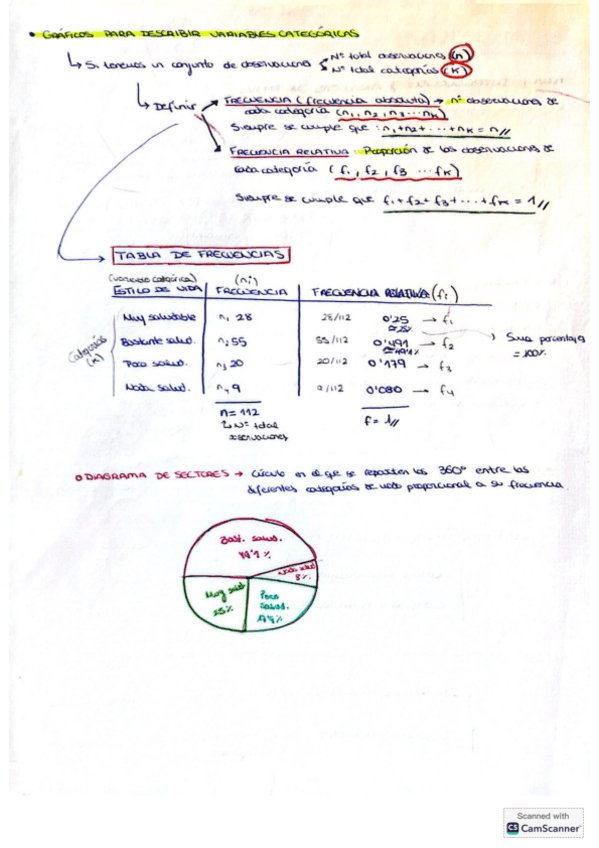 • GRÁFICOS PARA DESCRIBIR VARIABLES CATEGÓRICAS
↳ Si tenemos un conjunto de observaciones
Nº total observaciones (n)
Nº total categorías (K)
↳ Definir
FRECUENCIA (frecuencia absoluta) → nº observaciones de
cada categoría (n₁, n₂, n₃ ... nK)
Siempre se cumple que : n₁+n₂+...+nK = n//
FRECUENCIA RELATIVA : Proporción de las observaciones de
cada categoría (f₁, f₂, f₃ ... fK)
Siempre se cumple que f₁+f₂+f₃+...+fK = 1//
TABLA DE FRECUENCIAS
(variable categórica) (ni)
ESTILO DE VIDA FRECUENCIA FRECUENCIA RELATIVA (fi)
Categorías (K)
Muy saludable n₁ 28 28/112 0'25 → f₁
≅ 25%
Bastante salud. n₂ 55 55/112 0'491 → f₂
≅ 49'1%
Poco salud. n₃ 20 20/112 0'179 → f₃
Nada salud. n₄ 9 9/112 0'080 → f₄
Suma porcentajes
= 100%
n = 112 f = 1//
↳ Nº total
observaciones
o DIAGRAMA DE SECTORES → Círculo en el que se reparten los 360º entre las
diferentes categorías de modo proporcional a su frecuencia.
Bast. salud.
49'1 %
Nada salud.
8%
Muy salud.
25%
Poco
salud.
Scanned with
CS CamScanner